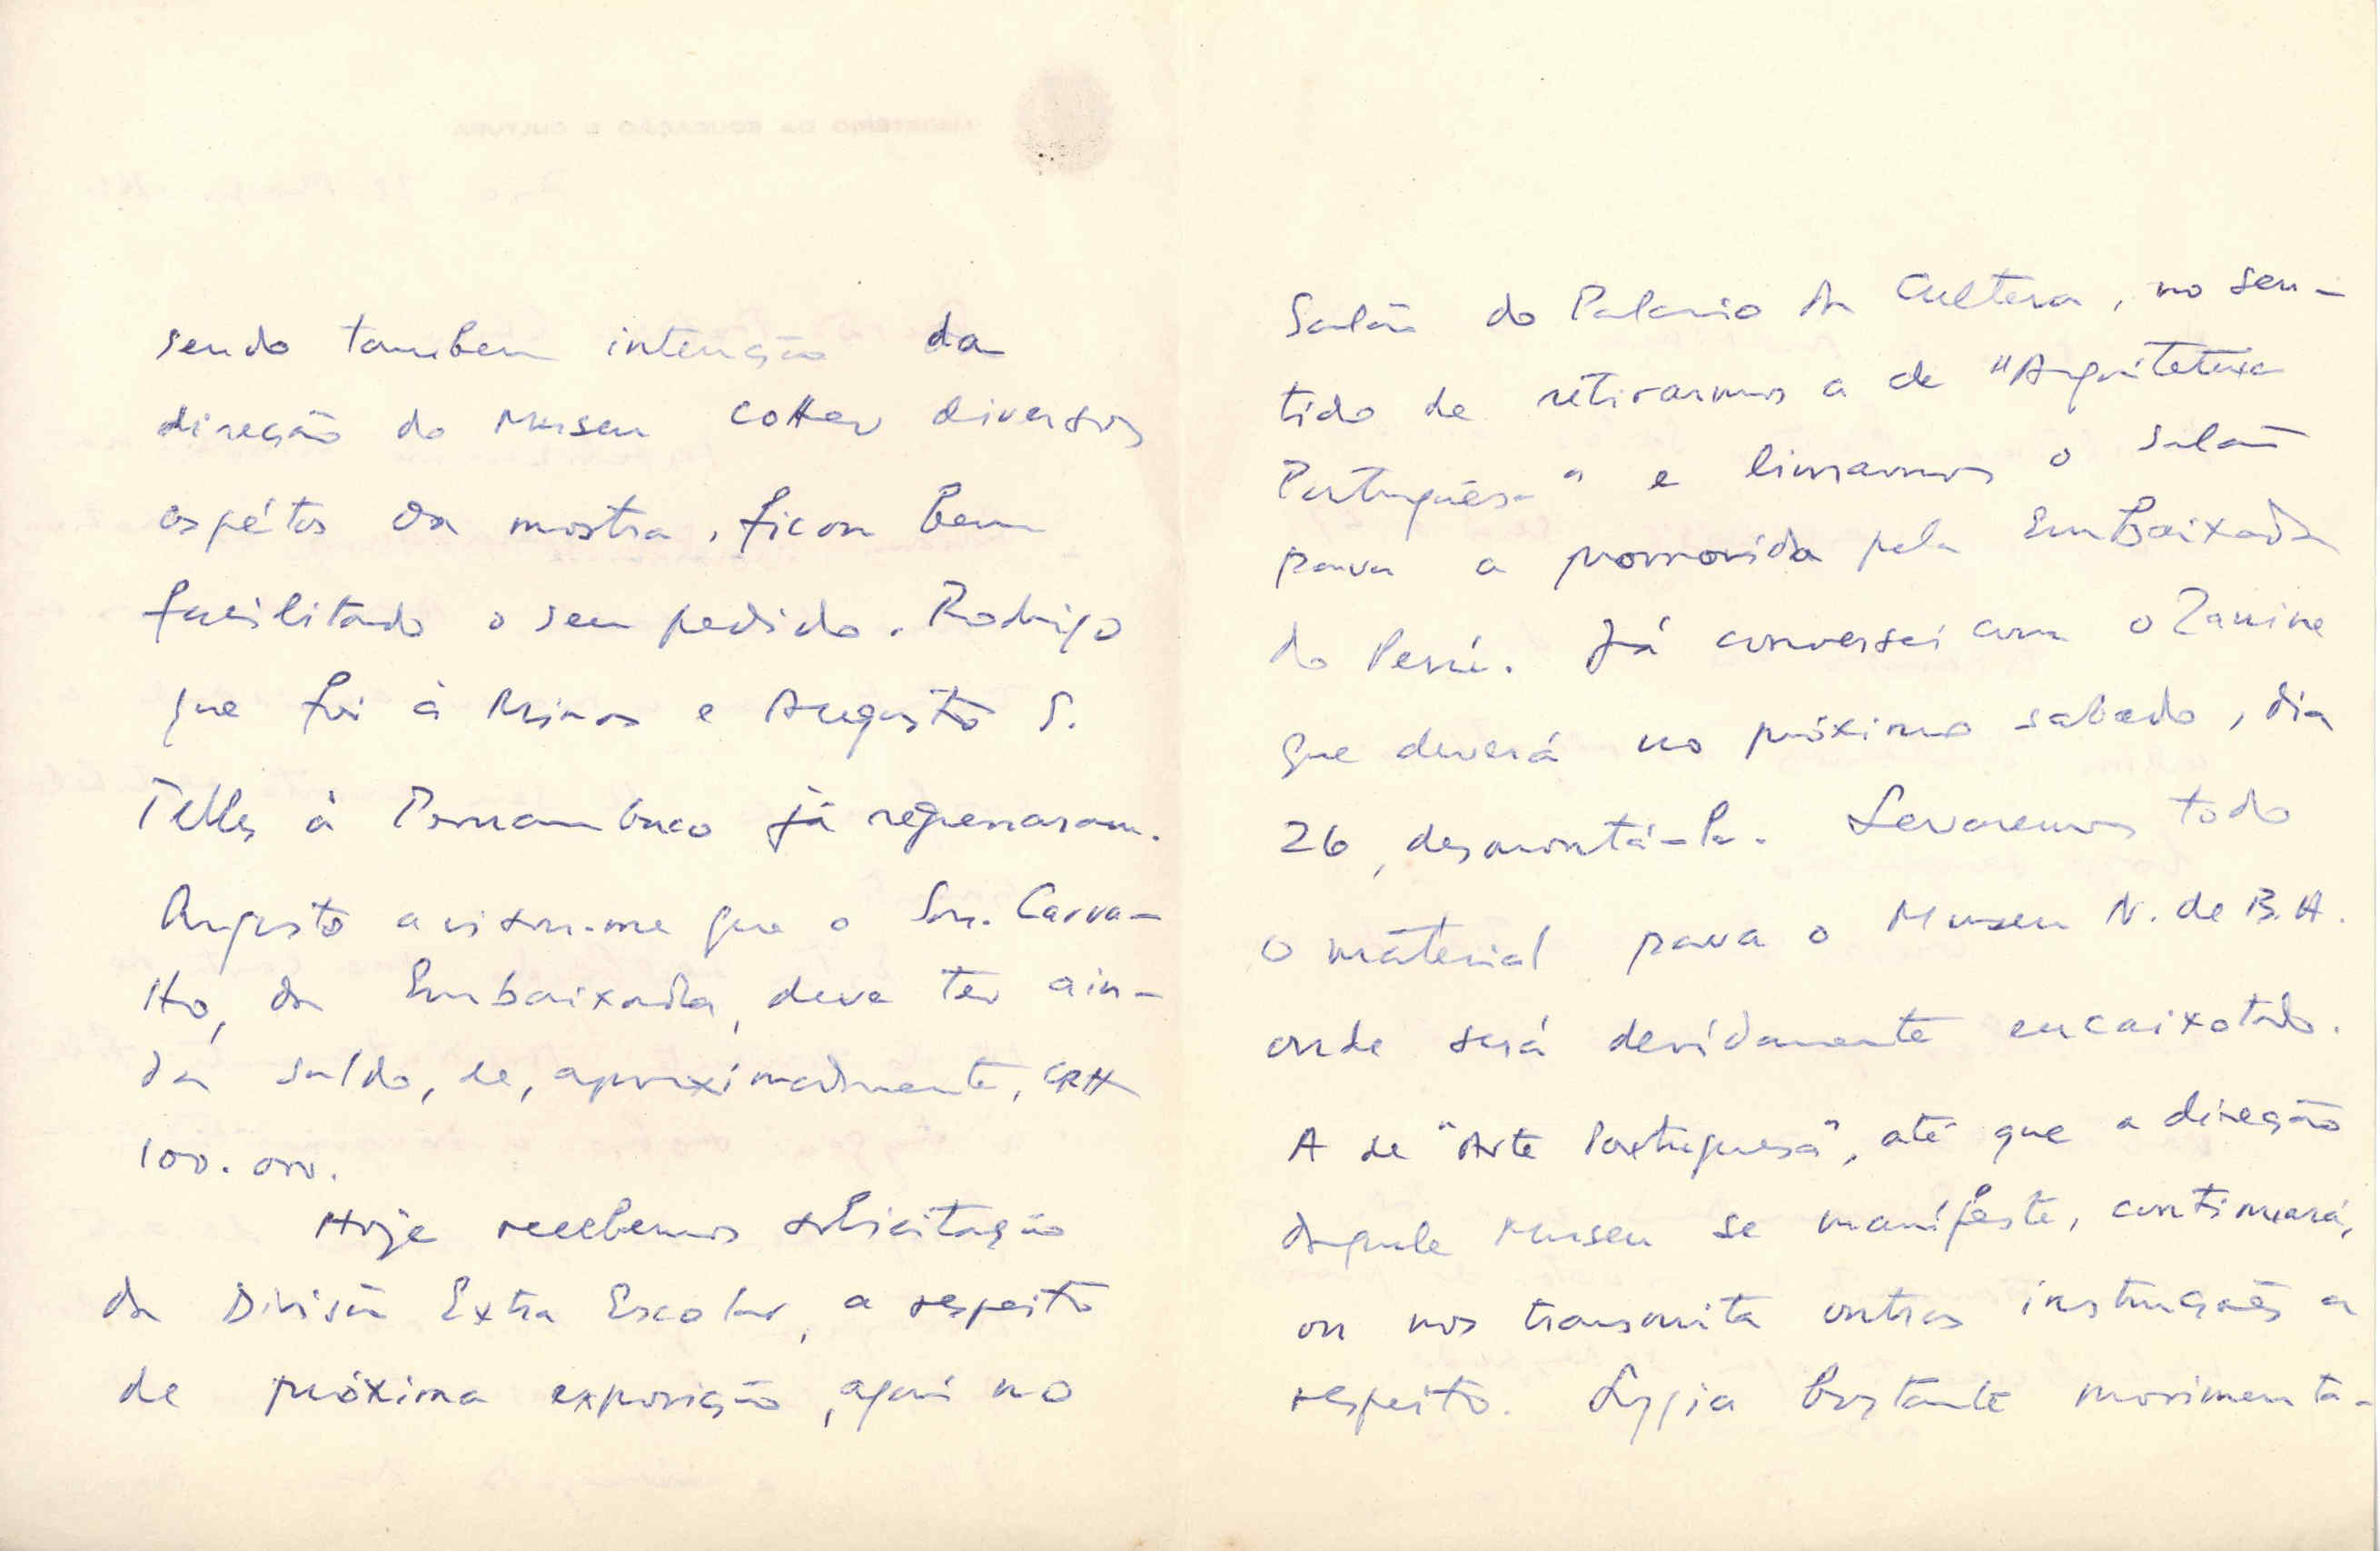 sendo tambem intenção da
direção do Museu colher diversos
aspétos da mostra, ficou bem
facilitado o seu pedido. Rodrigo
que foi à Minas e Augusto S.
Telles à Pernambuco já regressaram.
Augusto avisou-me que o Snr. Carva-
lho, da Embaixada, deve ter ain-
da saldo, de, aproximadamente, CR$
100.000.
Hoje recebemos solicitação
da Divisão Extra Escolar, a respeito
de próxima exposição, aqui no
Salão do Palacio da Cultura, no sen-
tido de retirarmos a de "Arquitetura
Portuguêsa" e livrarmos o salão
para a promovida pela Embaixada
do Perú. Já conversei com o Zanine
que deverá no próximo sabado, dia
26, desmontá-la. Levaremos todo
o material para o Museu N. de B.A.
onde será devídamente encaixotado.
A de "Arte Portuguesa", até que a direção
daquele Museu se manifeste, continuará,
ou nos transmita outras instruções a
respeito. Lygia bastante movimenta-